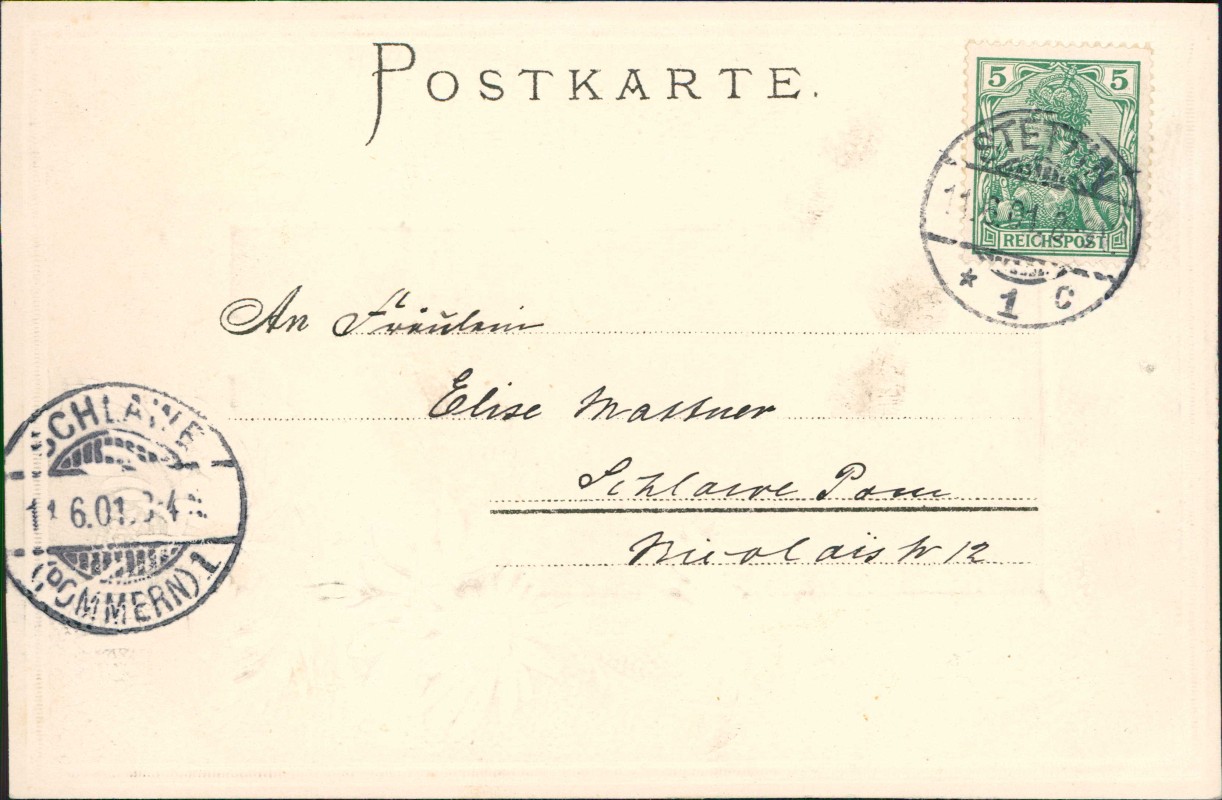 POSTKARTE.
5 5
REICHSPOST
STETTIN
* 1 C
An Fräulein
Elise Mattner
Schlawe Pom
Nicolaistr 12
SCHLAWE
11.6.01.
(POMMERN) 1